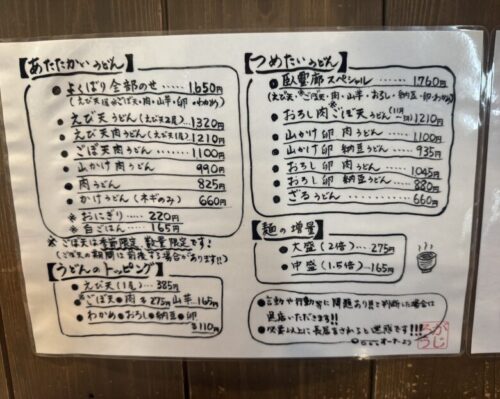 【あたたかいうどん】
●よくばり全部のせ…1,650円
(えび天・ごぼ天・肉・山芋・卵・わかめ)
●えび天うどん(えび天2尾)…1320円
●えび天肉うどん(えび天1尾)…1210円
●ごぼ天肉うどん…1100円
●山かけ肉うどん…990円
●肉うどん…825円
●かけうどん(ネギのみ)…660円
*おにぎり…220円
*白ごはん…165円
*ごぼ天は季節限定、数量限定です!
(ごぼ天の期間は前後する場合があります!!)
【うどんのトッピング】
●えび天(1尾)…385円
●ごぼ天●肉各275円 山芋…165円
●わかめ●おろし●納豆●卵
各110円
【つめたいうどん】
●臥龍廊スペシャル…1760円
(えび天・ごぼ天・肉・山芋・おろし・納豆・卵・わかめ)
●おろし肉ごぼ天うどん 1210円
●山かけ卵肉うどん…1100円
●山かけ卵納豆うどん…935円
●おろし卵肉うどん…1045円
●おろし卵納豆うどん…880円
●ざるうどん…660円
【麺の増量】
●大盛(2倍)…275円
●中盛(1.5倍)…165円
●言動や行動等に問題あり!と判断した場合は
退店いただきます!!
●必要以上に長居をされると迷惑です!!!